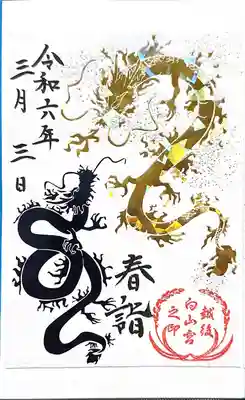 令和六年
三月三日
春詣
越後
白山宮
之印